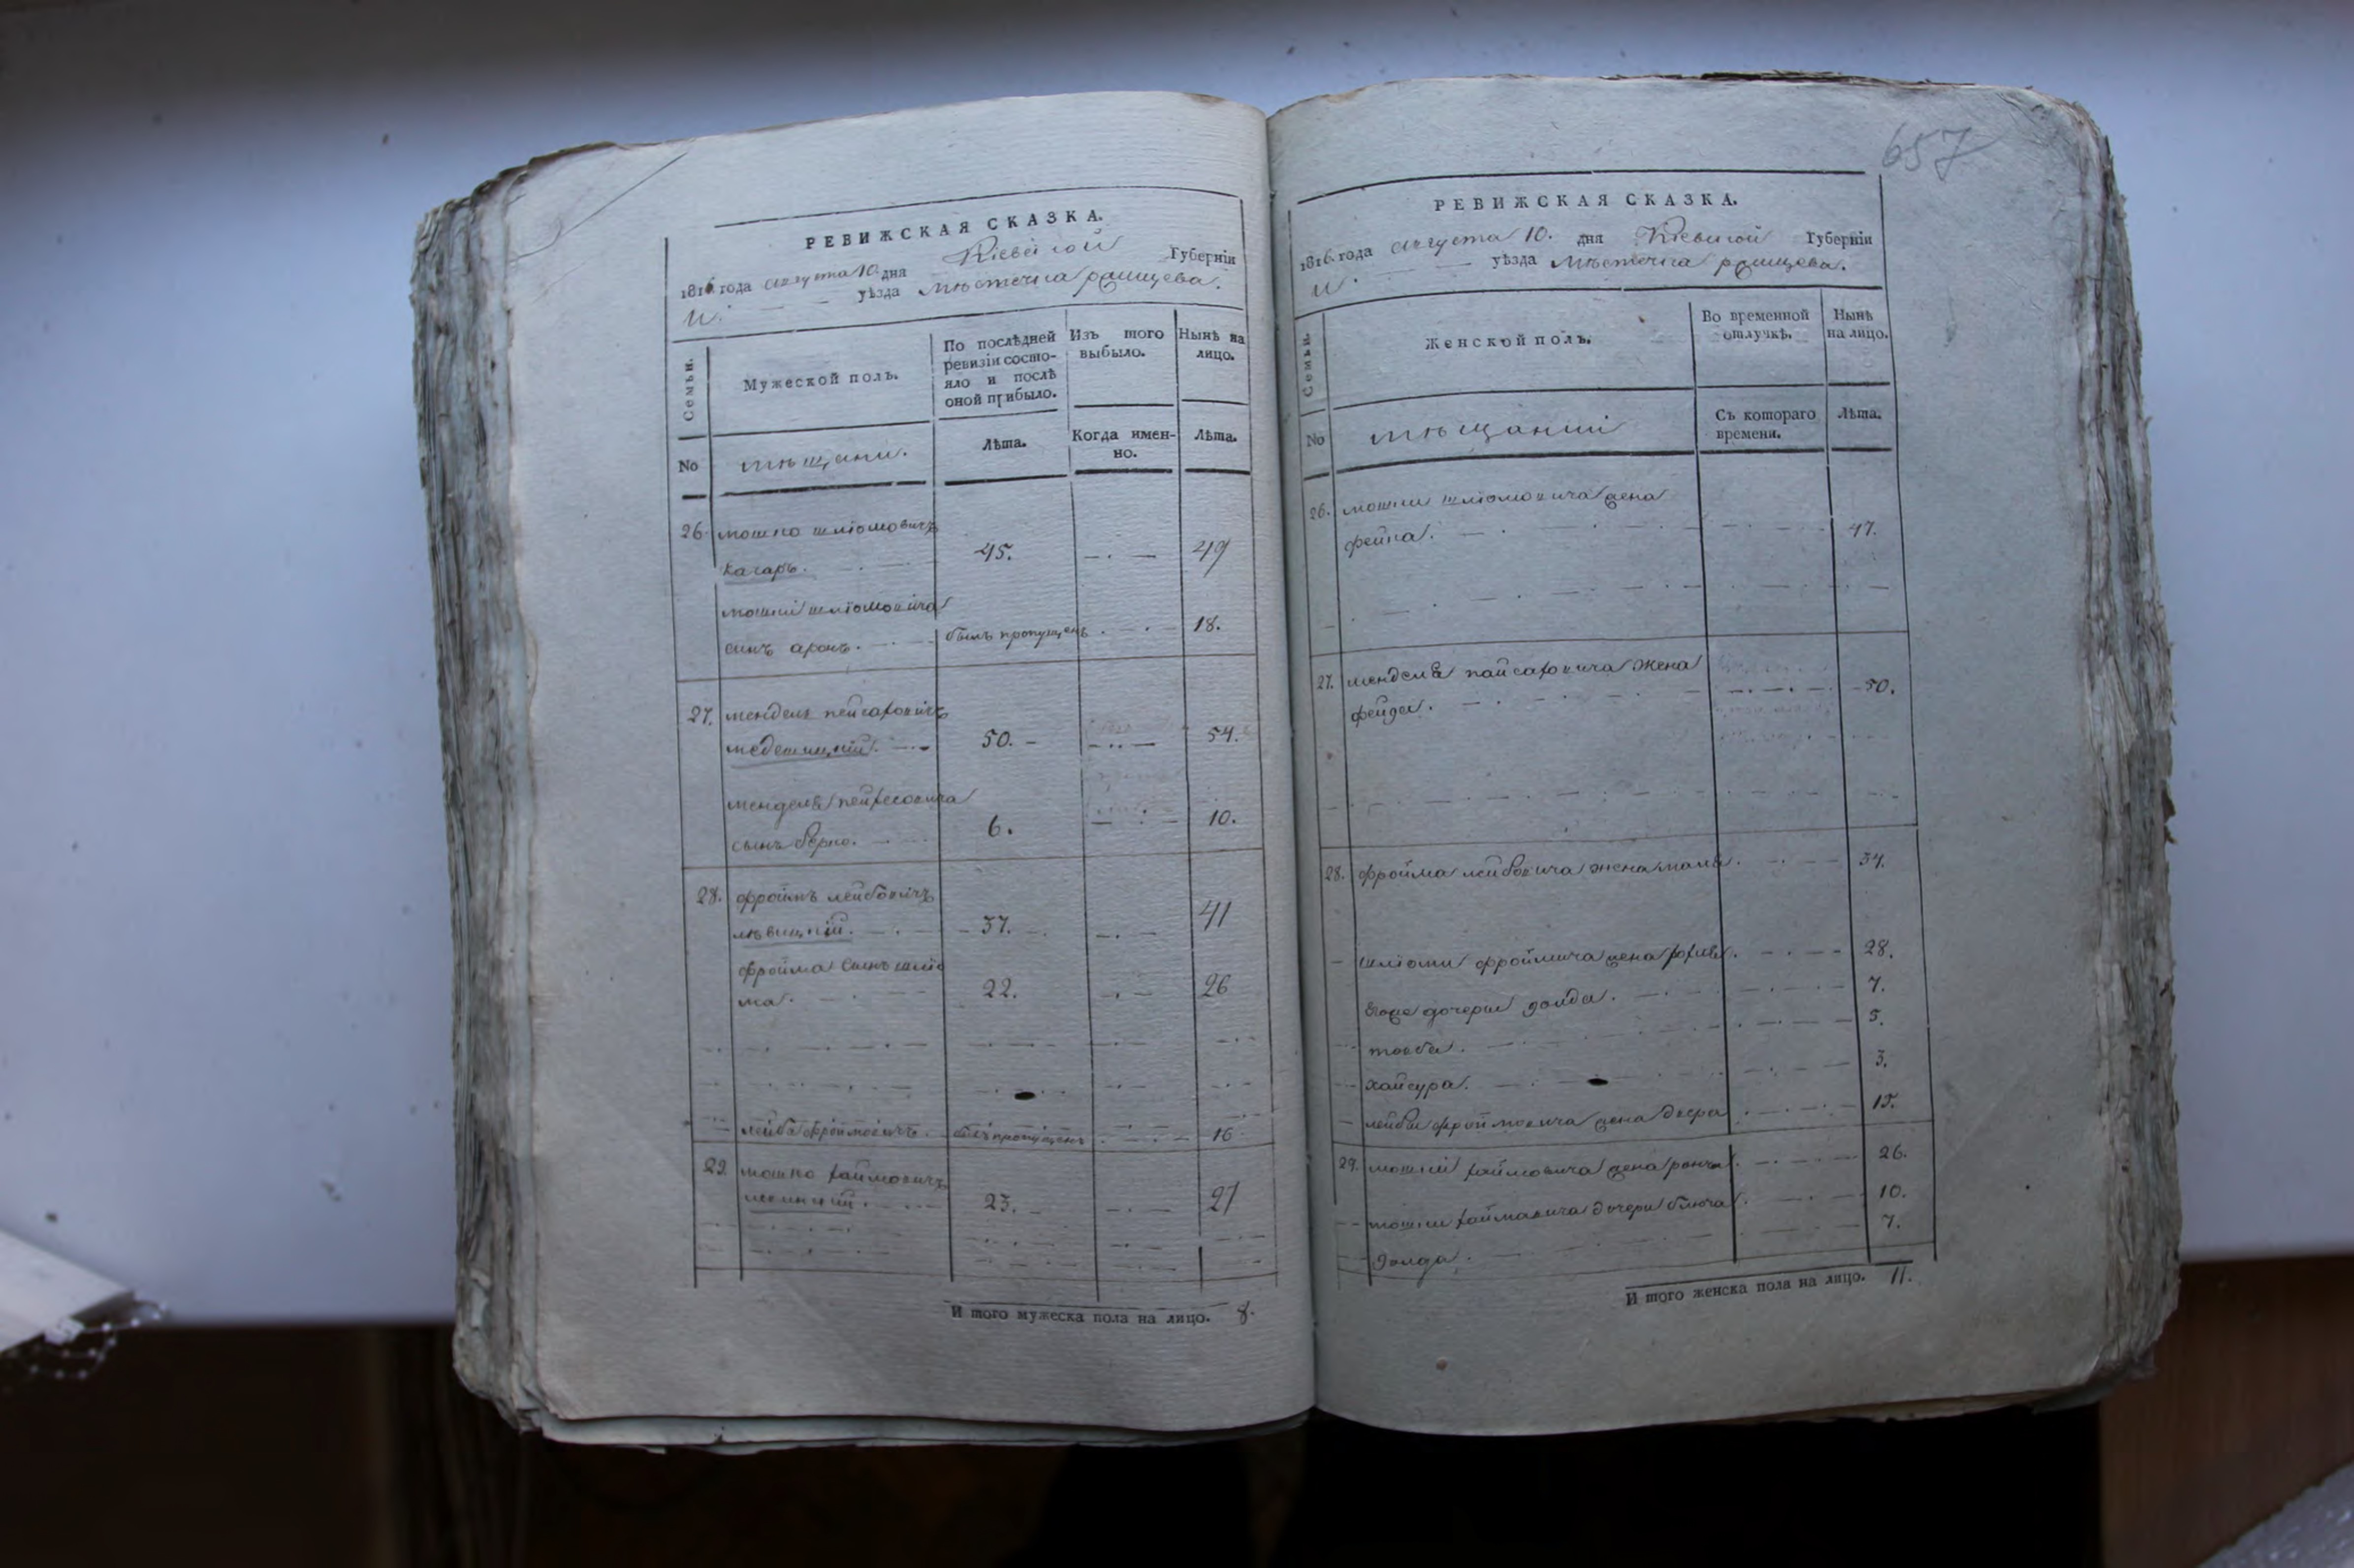 657
РЕВИЖСКАЯ СКАЗКА.
1816 года августа 10. дня Кіевской Губерніи
и. уѣзда мѣстечка ращцева.
Семьи.
Мужеской полъ.
По послѣдней ревизіи состо-
яло и послѣ оной прибыло.
Изъ того выбыло.
Нынѣ на лицо.
No
мѣщани.
Лѣта.
Когда имен-
но.
Лѣта.
26. мошко шліомовичъ
кагаръ. 45. 49
мошки шліомовича
синъ аронъ. былъ пропущенъ 18.
27. мендель пейсаховичъ
50. 54.
менделя
сынъ берко. 6. 10.
28. фроимъ лейбовичъ
37. 41
фройма синъ шліо
ма. 22. 26
лейба фроймовичъ. былъ пропущенъ 16
29. мошко хаймовичъ
23. 27
И того мужеска пола на лицо. 8.
РЕВИЖСКАЯ СКАЗКА.
1816. года августа 10. дня Кіевской Губерніи
и. уѣзда мѣстечка ращцева.
Семьи.
Женской полъ.
Во временной отлучкѣ.
Нынѣ на лицо.
No
Съ котораго времени.
Лѣта.
26. мошки шліомовича жена
фейга. 47.
27. менделя пайсаховича жена
фейда. 50.
28. фройма лейбовича жена маля. 34.
шліоми фроймича жена 28.
дочери голда. 7.
товба. 5.
хайсура. 3.
лейби фроймовича жена двера 15.
29. мошки хаймовича жена 26.
мошки хаймовича дочери блюма 10.
голда. 7.
И того женска пола на лицо. 11.